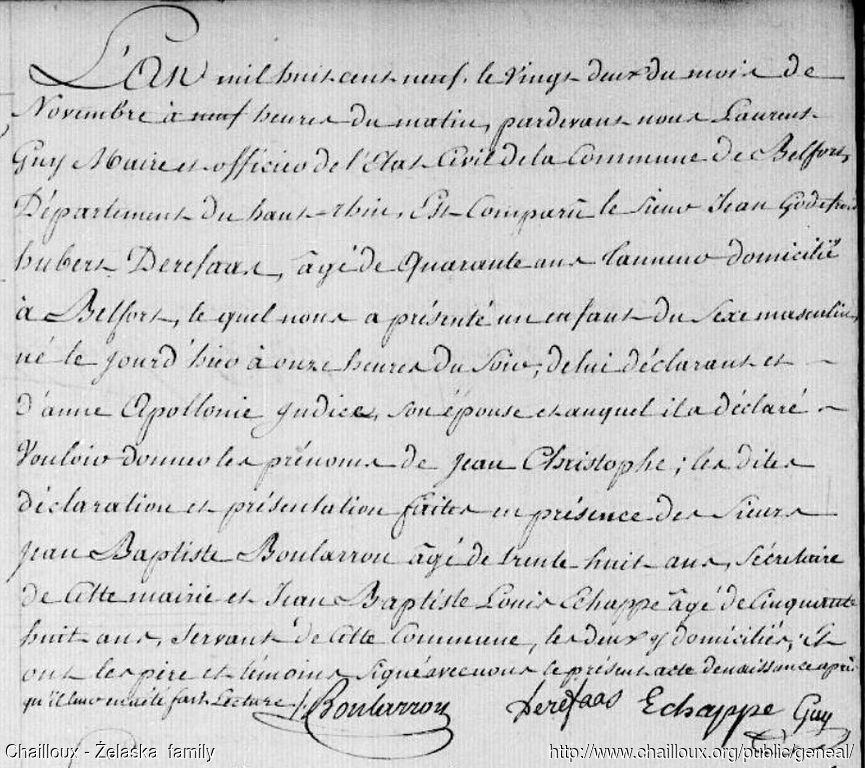 L'an mil huit cent neuf, le vingt deux du mois de
Novembre à neuf heures du matin, pardevant nous Laurent
Guy Maire et officier de l'Etat Civil de la Commune de Belfort,
Département du haut-rhin, Est Comparû le Sieur Jean Godefroid
hubert Derefaas, âgé de Quarante ans Tanneur domicilié
à Belfort, le quel nous a présenté un enfant du Sexe masculin,
né le jourd'hier à onze heures du Soir, de lui déclarant et
d'anne Apollonie Judice, son épouse et auquel il a déclaré
Vouloir donner les prénoms de Jean Christophe; les dites
déclaration et présentation faites en présence des Sieurs
Jean Baptiste Boularron âgé de trente huit ans, Sécretaire
de Cette mairie et Jean Baptiste Louis Echappe âgé de Cinquante
huit ans, Servant de Cette Commune, les deux y domiciliés; Et
ont les père et témoins Signé avec nous le présent acte de naissance après
qu'il leur en a été fait Lecture.
Boularron Derefaas Echappe Guy
Chailloux - Żelaska family http://www.chailloux.org/public/geneal/